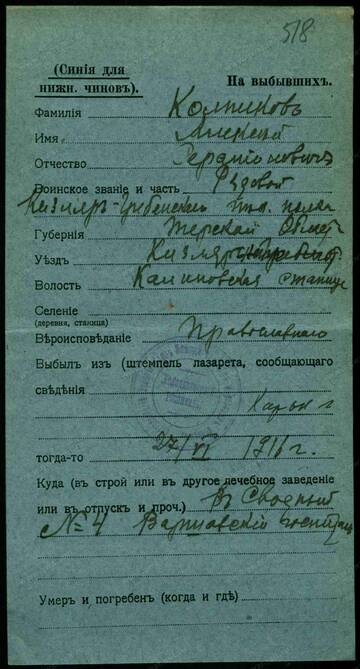 518
(Синія для
нижн. чиновъ).
На выбывшихъ.
Фамилія Колпиковъ
Имя Алексѣй
Отчество
Воинское званіе и часть Рядовой
Кизляро-Гребенск. полка
Губернія Терская Област
Уѣздъ Кизляр
Волость Калиновская станица
Селеніе
(деревня, станица)
Вѣроисповѣданіе Православнаго
Выбылъ изъ (штемпель лазарета, сообщающаго
свѣдѣнія
Харьк г
тогда-то 27/VI 1916 г.
Куда (въ строй или въ другое лечебное заведеніе
или въ отпускъ и проч.) въ Сводный
№ 4 Варшавскій госпиталь
Умеръ и погребенъ (когда и гдѣ)